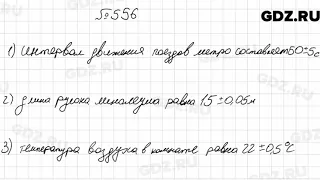 №556
GDZ.RU
1) Интервал движения поездов метро составляет 50±5с
2) длина рулона линолеума равна 15±0,05м
3) температура воздуха в комнате равна 22±0,5°С